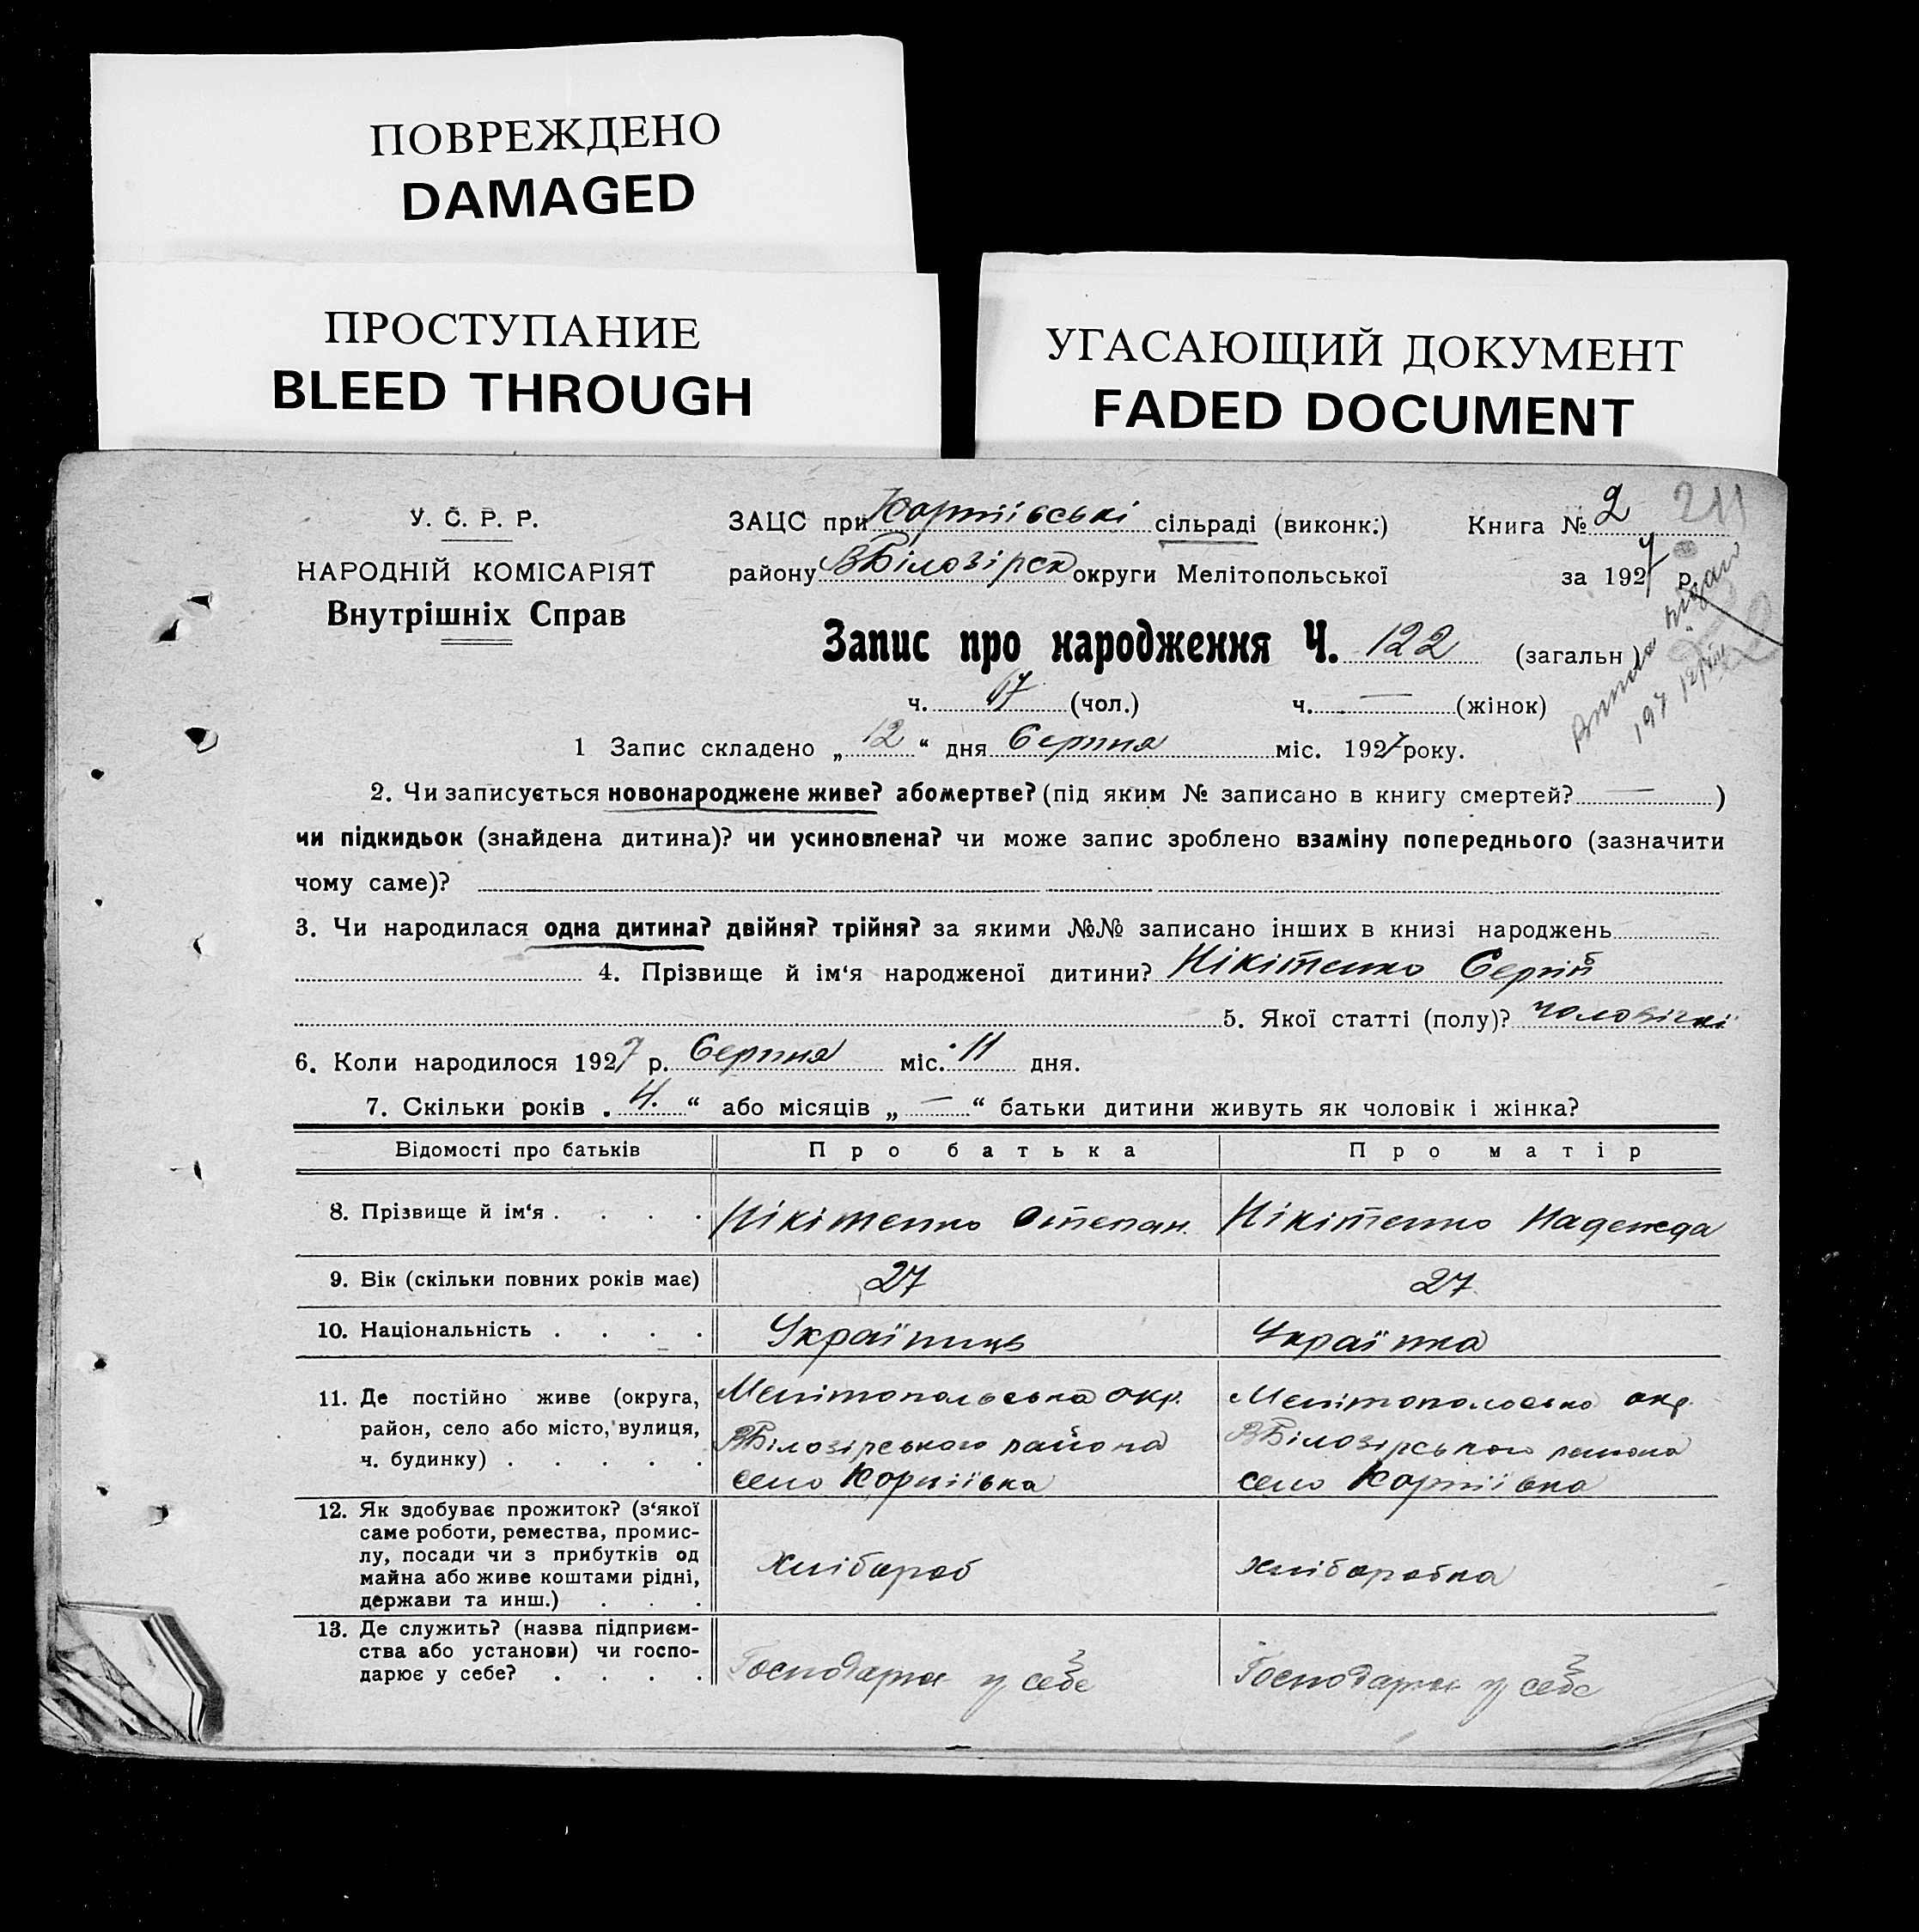 ПОВРЕЖДЕНО
DAMAGED
ПРОСТУПАНИЕ
BLEED THROUGH
УГАСАЮЩИЙ ДОКУМЕНТ
FADED DOCUMENT
У. С. Р. Р.
НАРОДНІЙ КОМІСАРІЯТ
Внутрішніх Справ
ЗАЦС при сільраді (виконк.) Книга № 2 211
району ВБілозірск округи Мелітопольської за 1927 р.
Запис про народження Ч. 122 (загальн.)
ч. 67 (чол.) ч. — (жінок)
1 Запис складено „ 12 “ дня Серпня міс. 1927 року.
2. Чи записується новонароджене живе? або мертве? (під яким № записано в книгу смертей? — )
чи підкидьок (знайдена дитина)? чи усиновлена? чи може запис зроблено взаміну попереднього (зазначити
чому саме)?
3. Чи народилася одна дитина? двійня? трійня? за якими №№ записано інших в книзі народжень
4. Прізвище й ім‘я народженої дитини? Нікітенко Сергій
5. Якої статті (полу)? чоловічої
6. Коли народилося 1927 р. Серпня міс. 11 дня.
7. Скільки років „ 4. “ або місяців „ — “ батьки дитини живуть як чоловік і жінка?
Відомості про батьків Про батька Про матір
8. Прізвище й ім‘я . . . . Нікітенко Степан. Нікітенко Надежда
9. Вік (скільки повних років має) 27 27
10. Національність . . . . Українць Українка
11. Де постійно живе (округа, Мелітопольська окр. Мелітопольсько окр.
район, село або місто, вулиця, ВБілозірського района ВБілозірського района
ч. будинку) . . . . . село село
12. Як здобуває прожиток? (з‘якої
саме роботи, ремества, промис-
лу, посади чи з прибутків од хлібароб хлібаробка
майна або живе коштами рідні,
держави та инш.) . . .
13. Де служить? (назва підприєм-
ства або установи) чи госпо- Господарює у себе Господарює у себе
дарює у себе? . . . .